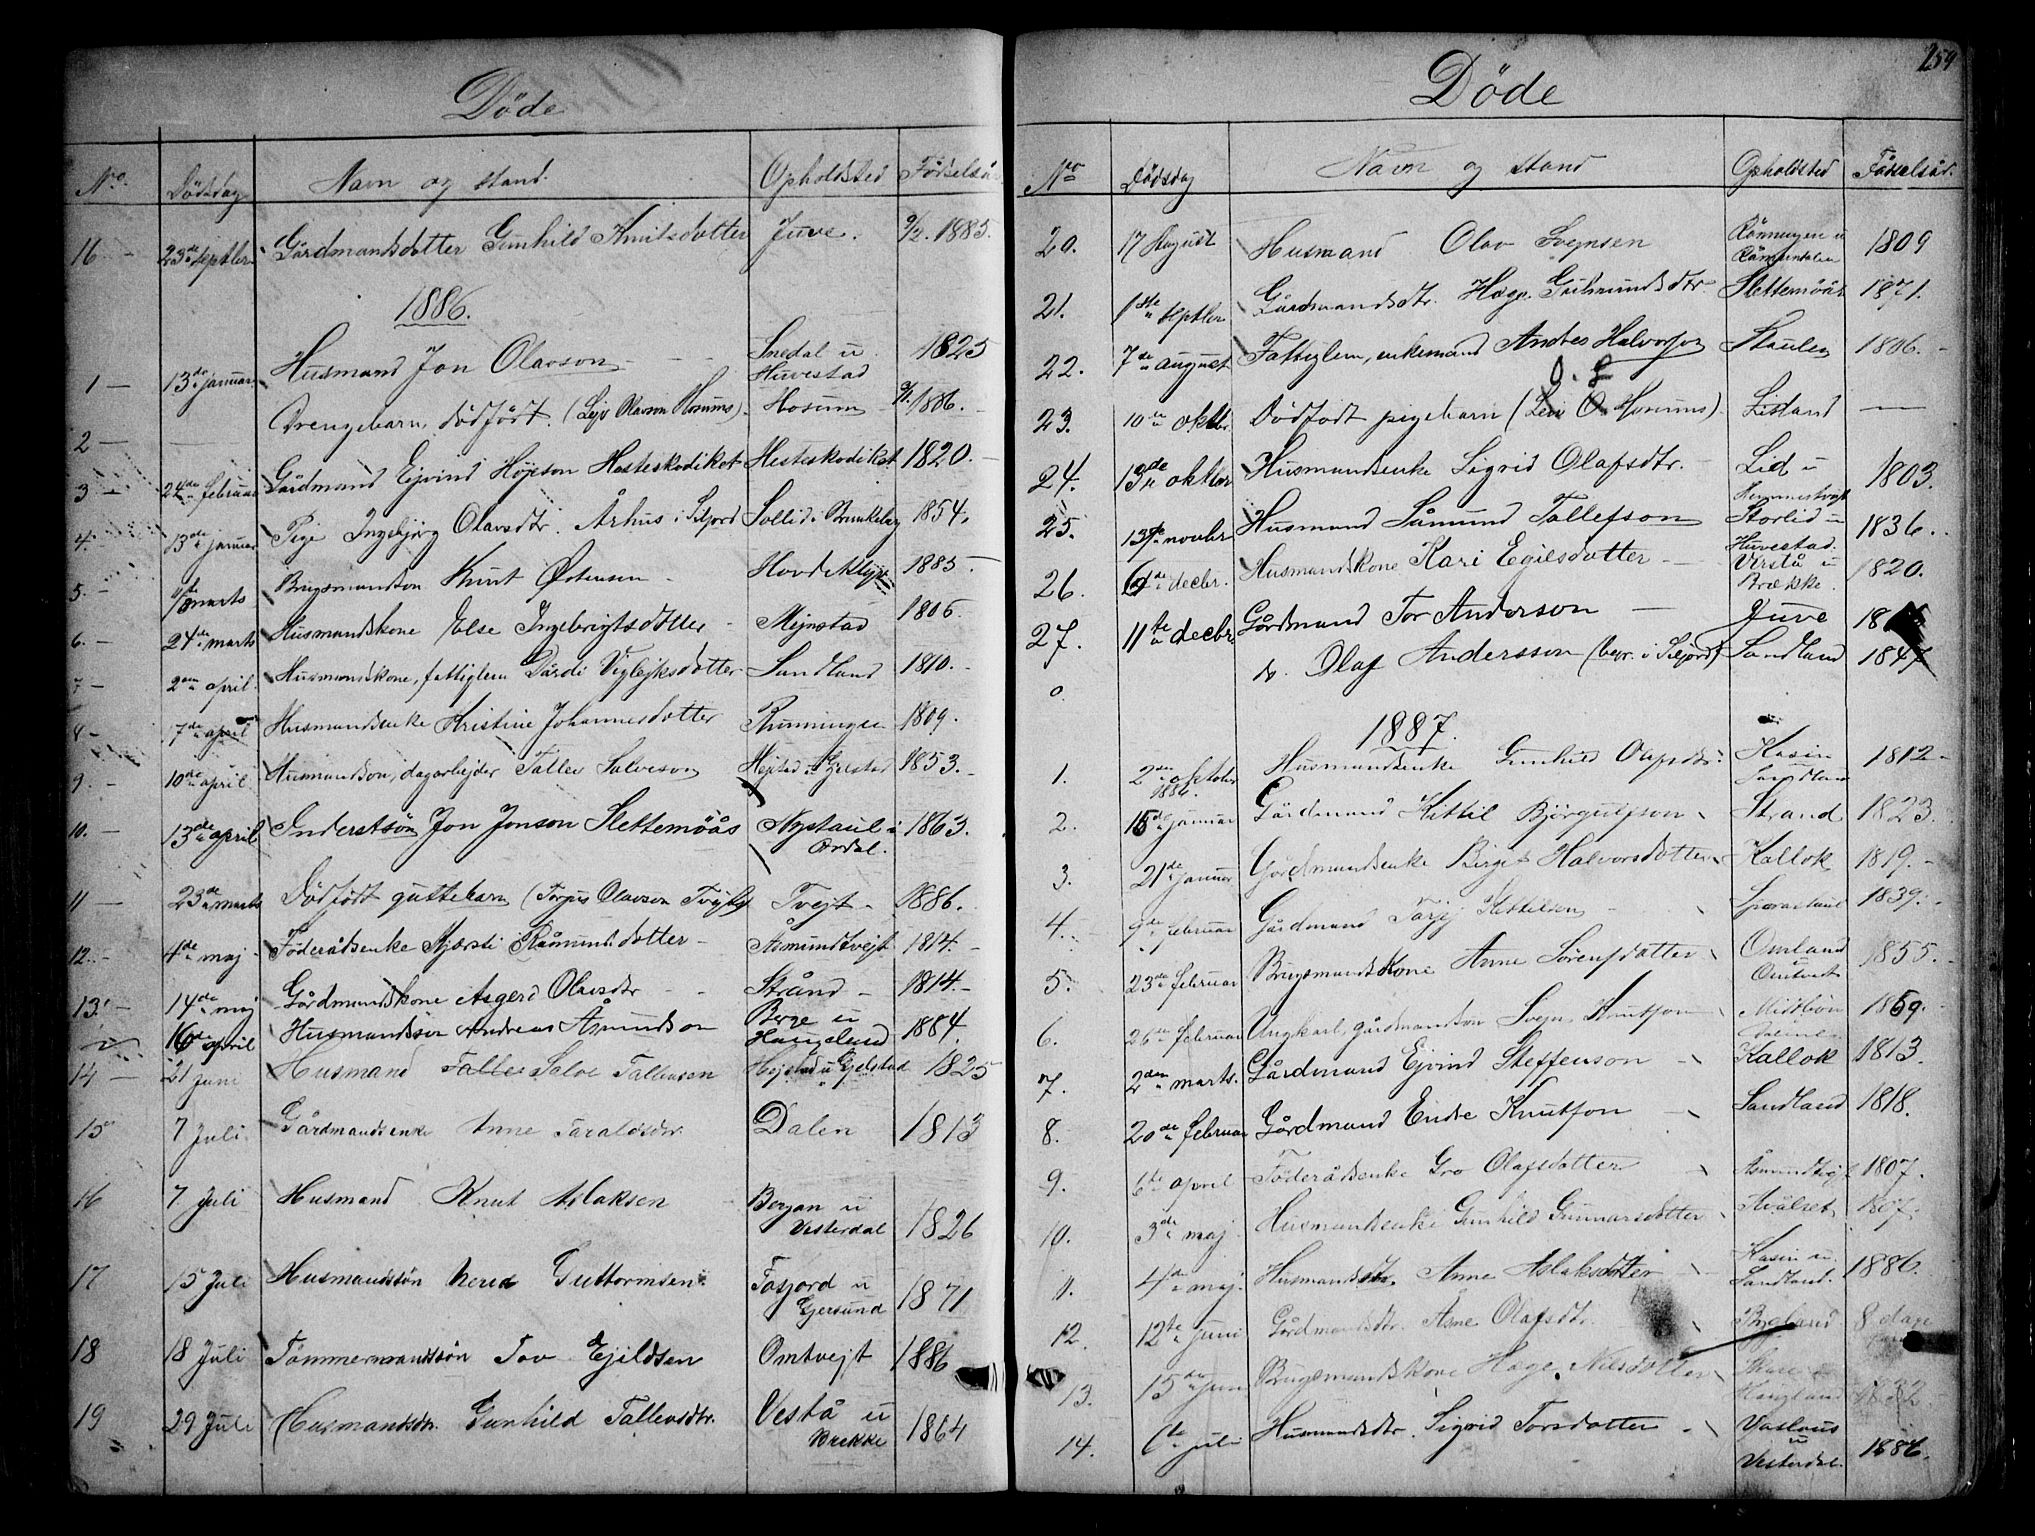 Döde
No. Dödsdag Navn og stand. Opholdsted Födselsår
16 23de septbr Gårdmandsdotter Gunhild Knutsdotter Juve. 9/2. 1885.
1886.
1 13de januar Husmand Jon Olavson Snedal u. Huvestad 1825
2 Drengebarn, dödfödt. (Lejv Olavson Hosums) Hosum 1886.
3 22de februar Gårdmand Ejvind Hojeson Hesteskodiket Hesteskodiket 1820.
4. 13de januar Pige Ingebjörg Olavsdtr. Århus i Siljord Sollid i Brunkeberg 1854.
5. marts Brugsmandsön Knut Östensen Hovdeklypi 1885
6. 24de marts Husmandskone Else Ingebrigtsdotter Mejnstad 1806.
7 2den april. Husmandskone, fattiglem Dårdi Viglejksdotter Sandland 1810.
8 7de april Husmandsenke Kristine Johannesdotter Runningen 1809.
9. 10de april. Husmandsön, dagarbejder Tallev Salveson Hejstad u Gjelstad 1853.
10. 13de april Inderstsön Jon Jonson Slettemöås Nystaul i Ordal. 1863.
11 23de marts Dödfödt guttebarn (Torjus Olavson Tvejt) Tvejt 1886.
12. 4de maj Föderådsenke Kjersti Råmundsdotter Åsmundtvejt 1814.
13. 14de maj Gårdmandskone Asgerd Olavsdtr Strånd 1814.
16de april Husmandssön Andreas Åmundson Berge u Haugelund 1884.
14 21 Juni Husmand Tallev Salve Tallevsen Hejstad u Gjelstad 1825
15 7 Juli. Gårdmandsenke Anne Taraldsdtr. Dalen 1813
16 7. Juli Husmand Knut Aslaksen Bergan u Vesterdal 1826
17 15 Juli Husmandssön Nerid Guttormsen. Fosjord u Gjersund 1871
18 18 Juli Tömmermandssön Tov Ejildsen Omtvejt 1886
19 29 Juli Husmandsdtr. Gunhild Tallevsdtr. Vestå u Brekke 1864
259
Döde
No Dödsdag Navn og stand Opholdsted Födselsår.
20. 17 August Husmand Olav Svejnsen Rönningen u 1809
21. 1ste septbr Gårdmandsdtr. Hæge Gudmundsdtr. Slettemöås 1871.
22. 7de august Fattiglem, enkemand Andres Halvorson Staulen 1806.
23. 10de oktbr. Dödfödt pigebarn (Leiv O. Hosums) Lisland
24. 13de oktbr Husmandsenke Sigrid Olafsdtr. Lid u 1803.
25. 13de novbr Husmand Såmund Tallefson Storlid u Huvestad. 1836.
26. 6de decbr. Husmandskone Kari Egilsdotter Verstå u Brække. 1820.
27. 11te decbr. Gårdmand Tor Anderson Juve
do. Olaf Andersson (begr. i Siljord) Sandland 1847
1887.
1. 2den oktober 1886. Husmandsenke Gunhild Olafsdtr. Kasin Sandland 1812
2. 15de januar Gårdmand Kittil Björgulfson Strand 1823.
3. 21de januar Gårdmandsenke Birget Halvorsdotter Kallok 1819.
4. 9de februar Gårdmand Tarjej Kittilsen 1839.
5. 23de februar Brugsmandskone Anne Sörensdotter Omland u Omtvet 1855.
6. 26de februar Ungkarl, gårdmandsön Svejn Knutson Midtbön 1869.
7. 2den marts. Gårdmand Ejvind Steffenson Kallok 1813.
8. 20de februar Gårdmand Endre Knutson Sandland 1818.
9. 6te april Föderådsenke Gro Olafsdotter Åsmundtvejt 1807.
10. 3de maj Husmandsenke Gunhild Gunnarsdotter Kvålset 1807.
11. 4de maj. Husmandsdtr. Anne Aslaksdotter Kasin u. Sandland. 1886.
12. 12te juni Gårdmandsdtr. Åsne Olafsdtr. Bygland 8 dage
13. 15de juni Brugsmandskone Hæge Nilsdotter Haugland 1832
14. 6te juli Husmandsdtr. Sigrid Torsdotter Vaslaus u Vesterdal. 1886.